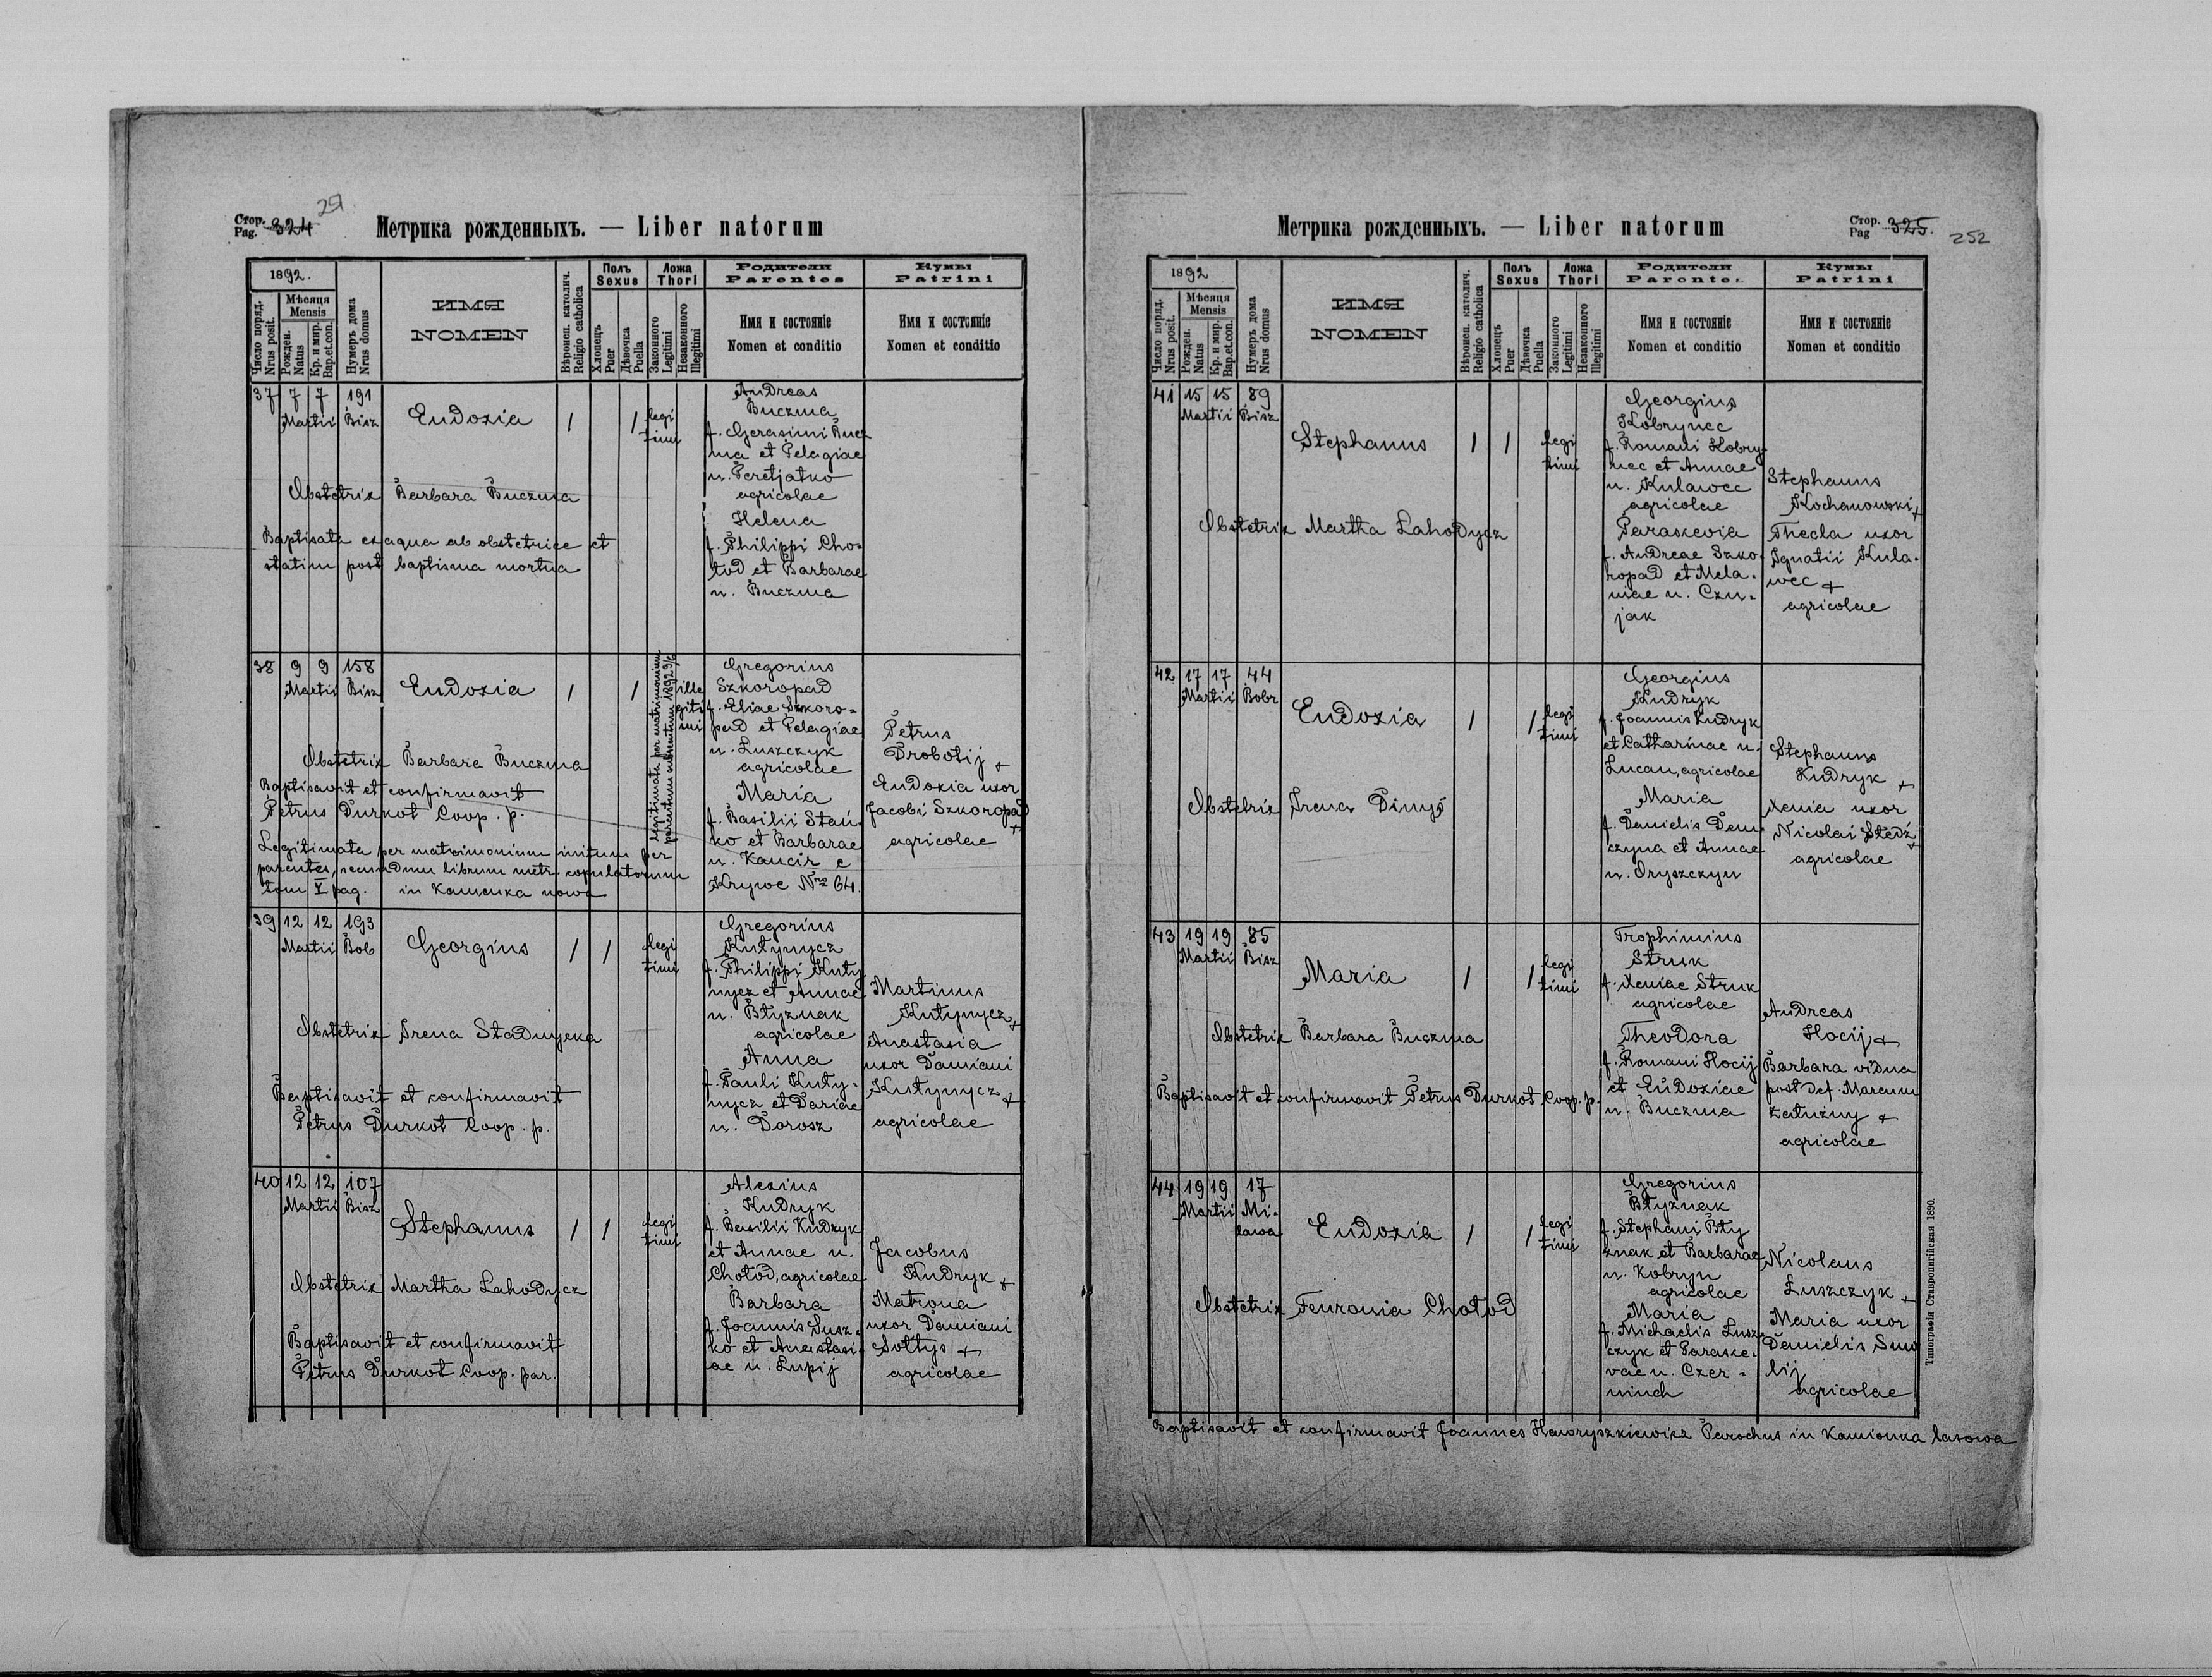 Стор. Pag. 324 251
Метрика рожденныхъ. — Liber natorum
1892.
Число поряд. Nrus posit.
Мѣсяця Mensis
Рожден. Natus
Кр. и мир. Bap. et con.
Нумеръ дома Nrus domus
ИМЯ
NOMEN
Вѣроисп. католич. Religio catholica
Полъ Sexus
Хлопецъ Puer
Дѣвочка Puella
Ложа Thori
Законного Legitimi
Незаконного Illegitimi
Родители Parentes
Имя и состоянiе
Nomen et conditio
Кумы Patrini
Имя и состоянiе
Nomen et conditio
37 7 7 191
Martii Bisz
Eudoxia 1 1 legi
timi
Andreas
Buczma
f. Gerasimi Bucz
ma et Pelagiae
n. Peretjatko
agricolae
Helena
f. Philippi Cho-
łod et Barbarae
n. Buczma
Obstetrix Barbara Buczma
Baptisata ex aqua ab obstetrice et
statim post baptisma mortua
38 9 9 158
Martii Bisz
Eudoxia 1 1
legitimata per matrimonium
parentum subsequentum 1892 9/6
ille
giti
mi
Gregorius
Szkoropad
f. Eliae Szkoro-
pad et Pelagiae
n. Łuszczyk
agricolae
Maria
f. Basilii Stań-
ko et Barbarae
n. Kancir e
Krywe Nro 64.
Petrus
Drobotij +
Eudoxia uxor
Jacobi Szkoropad
+
agricolae
Obstetrix Barbara Buczma
Baptisavit et confirmavit
Petrus Durkot Coop. p.
Legitimata per matrimonium initum per
parentes, secundum librum metr. copulatorum
tom V pag. in Kamenka nowa
39 12 12 193
Martii Bob
Georgius 1 1 legi
timi
Gregorius
Kutynycz
f. Philippi Kuty
nycz et Annae
n. Błyznak
agricolae
Anna
f. Pauli Kuty-
nycz et Dariae
n. Dorosz
Martinus
Kutynycz +
Anastasia
uxor Damiani
Kutynycz +
agricolae
Obstetrix Irena Stadnycka
Baptisavit et confirmavit
Petrus Durkot Coop. p.
40 12 12 107
Martii Bisz
Stephanus 1 1 legi
timi
Alexius
Kudryk
f. Basilii Kudryk
et Annae n.
Chołod, agricolae
Barbara
f. Joannis Susz-
ko et Anastasi-
ae n. Łupij
Jacobus
Kudryk +
Matrona
uxor Damiani
Sołtys +
agricolae
Obstetrix Martha Lahodycz
Baptisavit et confirmavit
Petrus Durkot Coop. par.
Метрика рожденныхъ. — Liber natorum
Стор. Pag 325. 252
1892
Число поряд. Nrus posit.
Мѣсяця Mensis
Рожден. Natus
Кр. и мир. Bap. et con.
Нумеръ дома Nrus domus
ИМЯ
NOMEN
Вѣроисп. католич. Religio catholica
Полъ Sexus
Хлопецъ Puer
Дѣвочка Puella
Ложа Thori
Законного Legitimi
Незаконного Illegitimi
Родители Parente
Имя и состоянiе
Nomen et conditio
Кумы Patrini
Имя и состоянiе
Nomen et conditio
41 15 15 89
Martii Bisz
Stephanus 1 1 legi
timi
Georgius
Kobrynec
f. Romani Kobry
nec et Annae
n. Kulawec
agricolae
Paraskevia
f. Andreae Szko-
ropad et Mela-
niae n. Czu-
jak
Stephanus
Kochanowski +
Thecla uxor
Ignatii Kula-
wec +
agricolae
Obstetrix Martha Lahodycz
42 17 17 44
Martii Bobr
Eudoxia 1 1 legi
timi
Georgius
Kudryk
f. Joannis Kudryk
et Catharinae n.
Lucan, agricolae
Maria
f. Danielis Dem
czyna et Annae
n. Oryszczyn
Stephanus
Kudryk +
Xenia uxor
Nicolai Stedź
+
agricolae
Obstetrix Irena Dinys
43 19 19 85
Martii Bisz
Maria 1 1 legi
timi
Trophimius
Struk
f. Xeniae Struk
agricolae
Theodora
f. Romani Hocij
et Eudoxiae
n. Buczma
Andreas
Hocij +
Barbara vidua
post def. Marcum
Załużny +
agricolae
Obstetrix Barbara Buczma
Baptisavit et confirmavit Petrus Durkot Coop. p.
44 19 19 17
Martii Mi-
lawa
Eudoxia 1 1 legi
timi
Gregorius
Błyznak
f. Stephani Bły
znak et Barbarae
n. Kobryn
agricolae
Maria
f. Michaelis Łusz-
czyk et Paraske-
vae n. Czer-
niuch
Nicolaus
Łuszczyk +
Maria uxor
Danielis Smo
lij
agricolae
Obstetrix Feuronia Chołod
Baptisavit et confirmavit Joannes Hawryszkiewicz Parochus in Kamionka lasowa
Типографія Ставропигійская 1890.